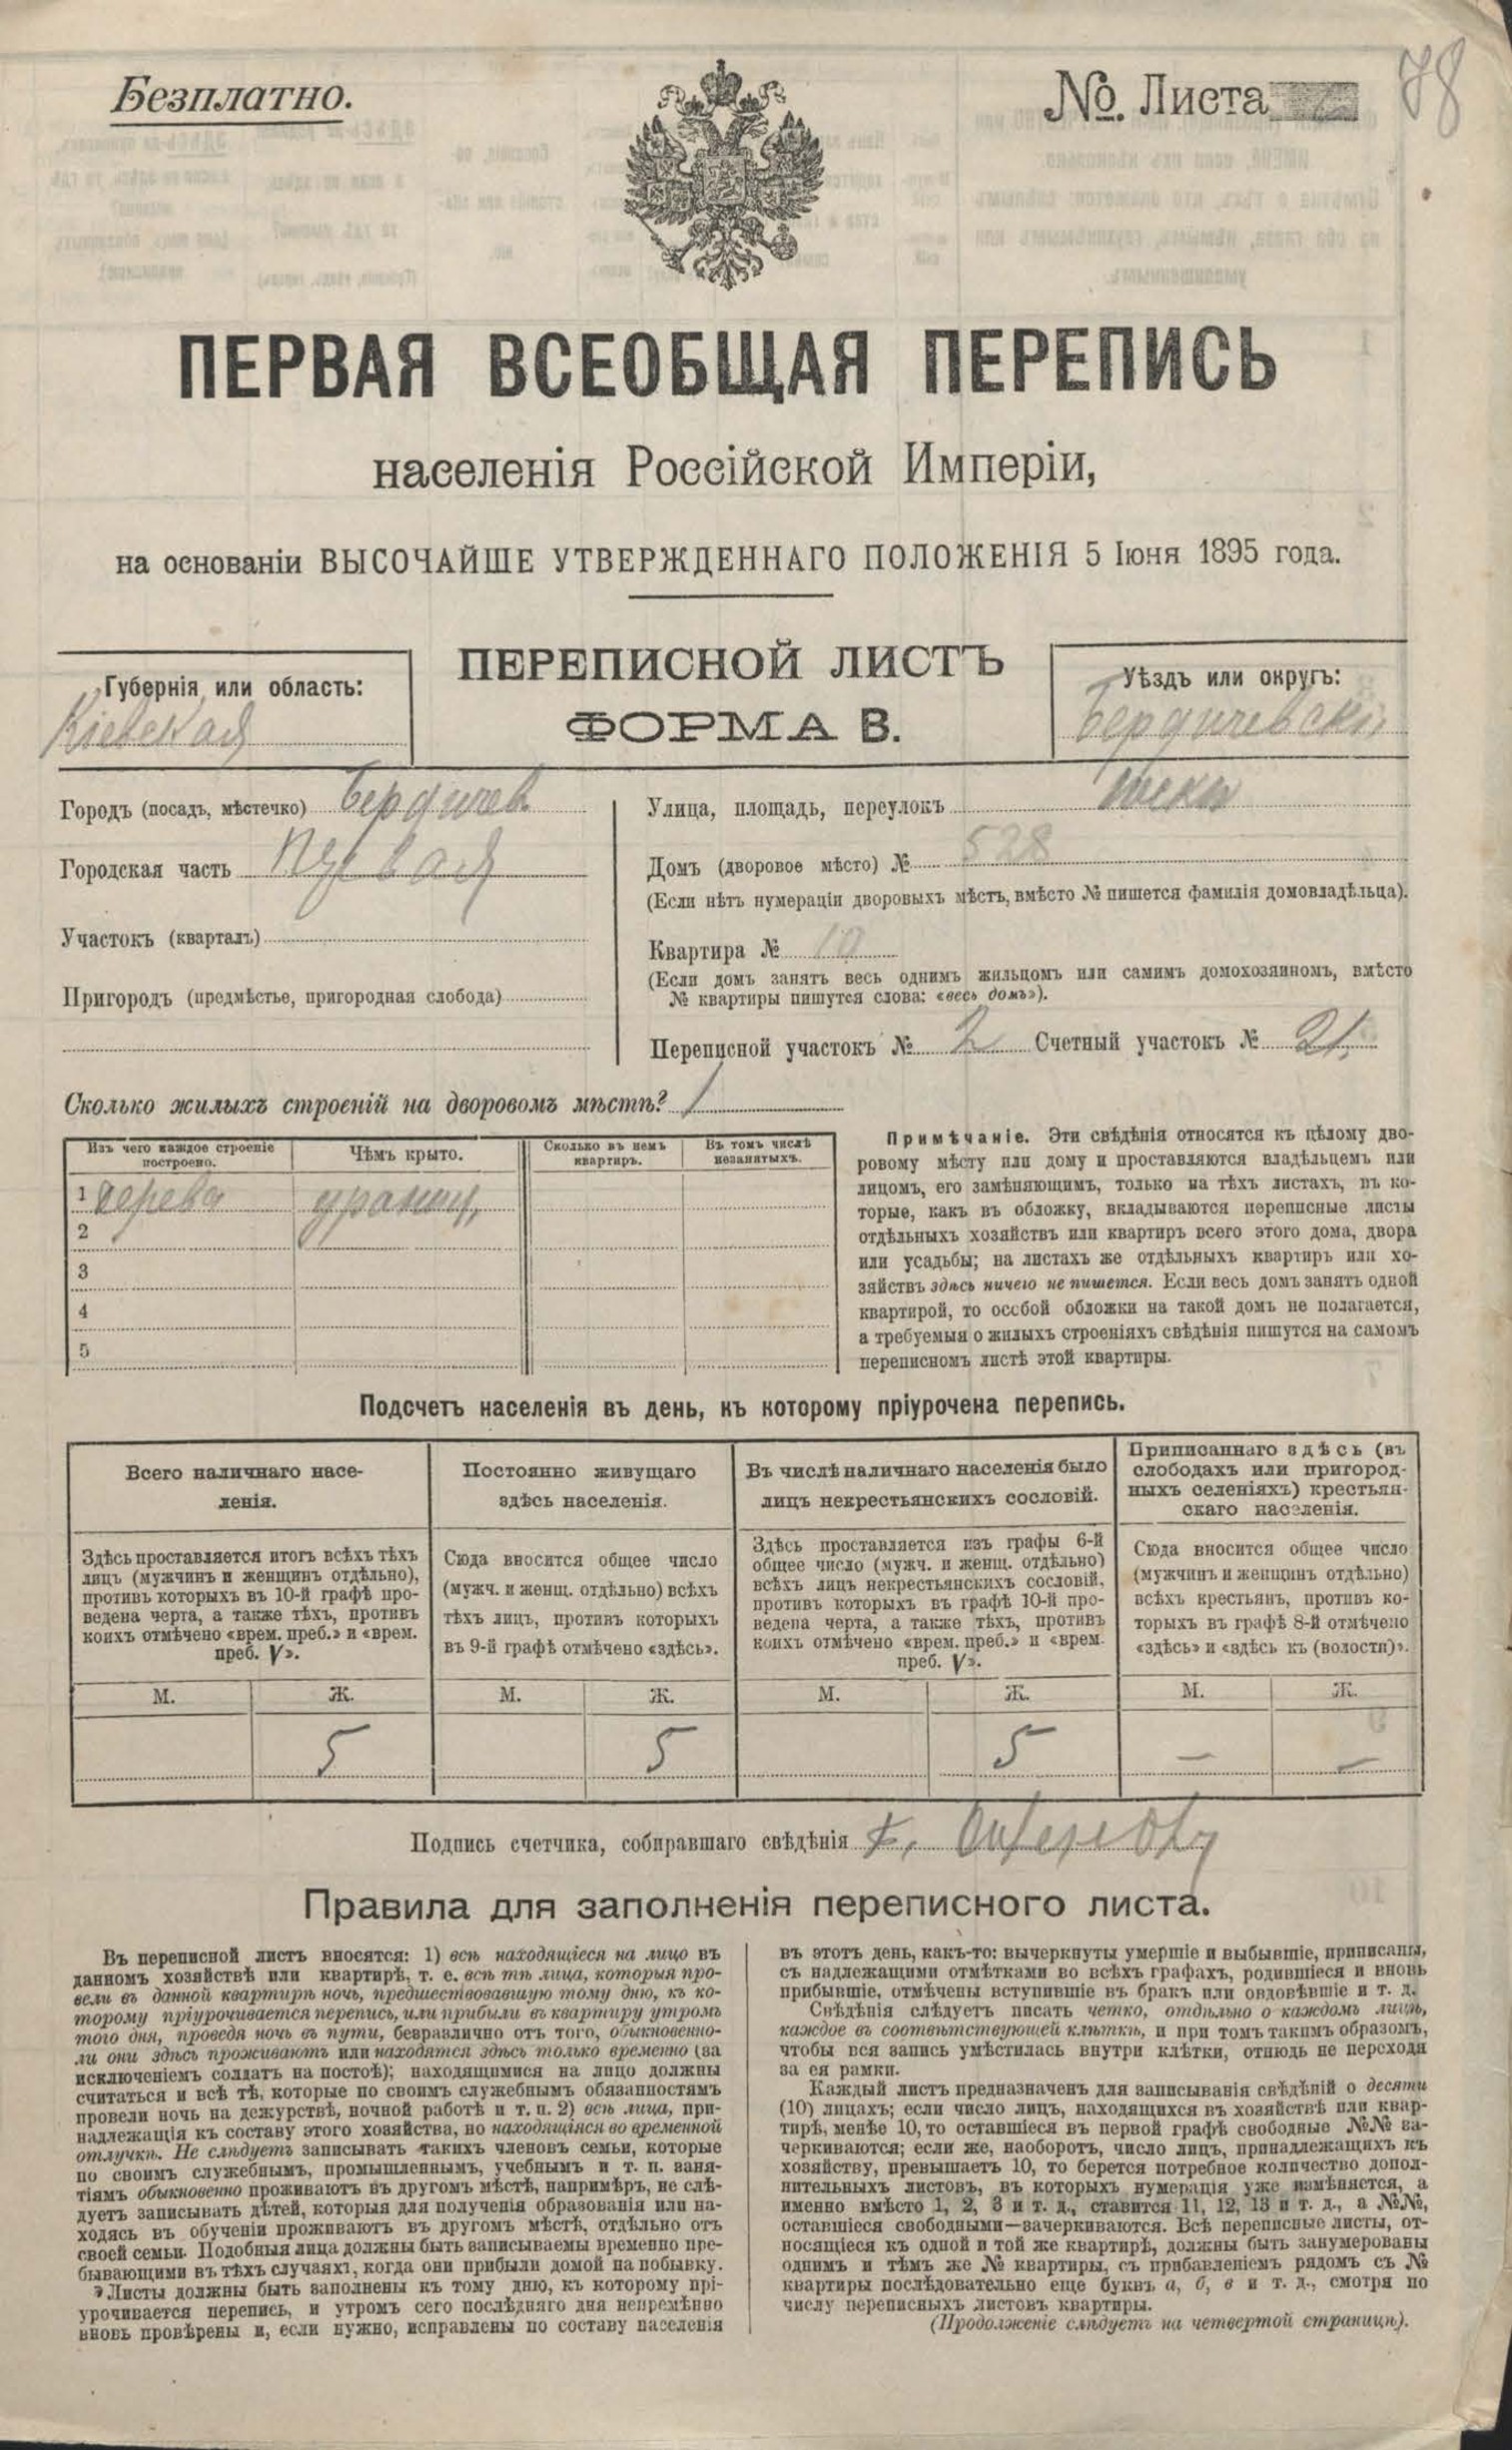 Безплатно.
№. Листа
78
ПЕРВАЯ ВСЕОБЩАЯ ПЕРЕПИСЬ
населенія Россійской Имперіи,
на основаніи ВЫСОЧАЙШЕ УТВЕРЖДЕННАГО ПОЛОЖЕНІЯ 5 Іюня 1895 года.
ПЕРЕПИСНОЙ ЛИСТЪ
ФОРМА В.
Губернія или область:
Кіевская
Уѣздъ или округъ:
Бердичевскі
Городъ (посадъ, мѣстечко) Бердичев
Городская часть Первая
Участокъ (кварталъ)
Пригородъ (предмѣстье, пригородная слобода)
Улица, площадь, переулокъ
Домъ (дворовое мѣсто) № 528
(Если нѣтъ нумераціи дворовыхъ мѣстъ, вмѣсто № пишется фамилія домовладѣльца).
Квартира № 10
(Если домъ занятъ весь однимъ жильцомъ или самимъ домохозяиномъ, вмѣсто
№ квартиры пишутся слова: «весь домъ»).
Переписной участокъ № 2 Счетный участокъ № 21.
Сколько жилыхъ строеній на дворовомъ мѣстѣ? 1
Изъ чего каждое строеніе
построено.
Чѣмъ крыто.
Сколько въ немъ
квартиръ.
Въ томъ числѣ
незанятыхъ.
1 дерева
2
3
4
5
Примѣчаніе. Эти свѣдѣнія относятся къ цѣлому дво-
ровому мѣсту или дому и проставляются владѣльцемъ или
лицомъ, его замѣняющимъ, только на тѣхъ листахъ, въ ко-
торые, какъ въ обложку, вкладываются переписные листы
отдѣльныхъ хозяйствъ или квартиръ всего этого дома, двора
или усадьбы; на листахъ же отдѣльныхъ квартиръ или хо-
зяйствъ здѣсь ничего не пишется. Если весь домъ занятъ одной
квартирой, то особой обложки на такой домъ не полагается,
а требуемыя о жилыхъ строеніяхъ свѣдѣнія пишутся на самомъ
переписномъ листѣ этой квартиры.
Подсчетъ населенія въ день, къ которому пріурочена перепись.
Всего наличнаго насе-
ленія.
Постоянно живущаго
здѣсь населенія.
Въ числѣ наличнаго населенія было
лицъ некрестьянскихъ сословій.
Приписаннаго здѣсь (въ
слободахъ или пригород-
ныхъ селеніяхъ) крестьян-
скаго населенія.
Здѣсь проставляется итогъ всѣхъ тѣхъ
лицъ (мужчинъ и женщинъ отдѣльно),
противъ которыхъ въ 10-й графѣ про-
ведена черта, а также тѣхъ, противъ
коихъ отмѣчено «врем. преб.» и «врем.
преб. V».
Сюда вносится общее число
(мужч. и женщ. отдѣльно) всѣхъ
тѣхъ лицъ, противъ которыхъ
въ 9-й графѣ отмѣчено «здѣсь».
Здѣсь проставляется изъ графы 6-й
общее число (мужч. и женщ. отдѣльно)
всѣхъ лицъ некрестьянскихъ сословій,
противъ которыхъ въ графѣ 10-й про-
ведена черта, а также тѣхъ, противъ
коихъ отмѣчено «врем. преб.» и «врем.
преб. V».
Сюда вносится общее число
(мужчинъ и женщинъ отдѣльно)
всѣхъ крестьянъ, противъ ко-
торыхъ въ графѣ 8-й отмѣчено
«здѣсь» и «здѣсь къ (волости)».
М. Ж. М. Ж. М. Ж. М. Ж.
5 5 5 — —
Подпись счетчика, собиравшаго свѣдѣнія
Правила для заполненія переписного листа.
Въ переписной листъ вносятся: 1) всѣ находящіеся на лицо въ
данномъ хозяйствѣ или квартирѣ, т. е. всѣ тѣ лица, которыя про-
вели въ данной квартирѣ ночь, предшествовавшую тому дню, къ ко-
торому пріурочивается перепись, или прибыли въ квартиру утромъ
того дня, проведя ночь въ пути, безразлично отъ того, обыкновенно-
ли они здѣсь проживаютъ или находятся здѣсь только временно (за
исключеніемъ солдатъ на постоѣ); находящимися на лицо должны
считаться и всѣ тѣ, которые по своимъ служебнымъ обязанностямъ
провели ночь на дежурствѣ, ночной работѣ и т. п. 2) всѣ лица, при-
надлежащія къ составу этого хозяйства, но находящіяся во временной
отлучкѣ. Не слѣдуетъ записывать такихъ членовъ семьи, которые
по своимъ служебнымъ, промышленнымъ, учебнымъ и т. п. заня-
тіямъ обыкновенно проживаютъ въ другомъ мѣстѣ, напримѣръ, не слѣ-
дуетъ записывать дѣтей, которыя для полученія образованія или на-
ходясь въ обученіи проживаютъ въ другомъ мѣстѣ, отдѣльно отъ
своей семьи. Подобныя лица должны быть записываемы временно пре-
бывающими въ тѣхъ случаяхъ, когда они прибыли домой на побывку.
Листы должны быть заполнены къ тому дню, къ которому прі-
урочивается перепись, и утромъ сего послѣдняго дня непремѣнно
вновь провѣрены и, если нужно, исправлены по составу населенія
въ этотъ день, какъ-то: вычеркнуты умершіе и выбывшіе, приписаны,
съ надлежащими отмѣтками во всѣхъ графахъ, родившіеся и вновь
прибывшіе, отмѣчены вступившіе въ бракъ или овдовѣвшіе и т. д.
Свѣдѣнія слѣдуетъ писать четко, отдѣльно о каждомъ лицѣ,
каждое въ соотвѣтствующей клѣткѣ, и при томъ такимъ образомъ,
чтобы вся запись умѣстилась внутри клѣтки, отнюдь не переходя
за ея рамки.
Каждый листъ предназначенъ для записыванія свѣдѣній о десяти
(10) лицахъ; если число лицъ, находящихся въ хозяйствѣ или квар-
тирѣ, менѣе 10, то оставшіеся въ первой графѣ свободные №№ за-
черкиваются; если же, наоборотъ, число лицъ, принадлежащихъ къ
хозяйству, превышаетъ 10, то берется потребное количество допол-
нительныхъ листовъ, въ которыхъ нумерація уже измѣняется, а
именно вмѣсто 1, 2, 3 и т. д., ставится 11, 12, 13 и т. д., а №№,
оставшіеся свободными—зачеркиваются. Всѣ переписные листы, от-
носящіеся къ одной и той же квартирѣ, должны быть занумерованы
однимъ и тѣмъ же № квартиры, съ прибавленіемъ рядомъ съ №
квартиры послѣдовательно еще буквъ а, б, в и т. д., смотря по
числу переписныхъ листовъ квартиры.
(Продолженіе слѣдуетъ на четвертой страницѣ).